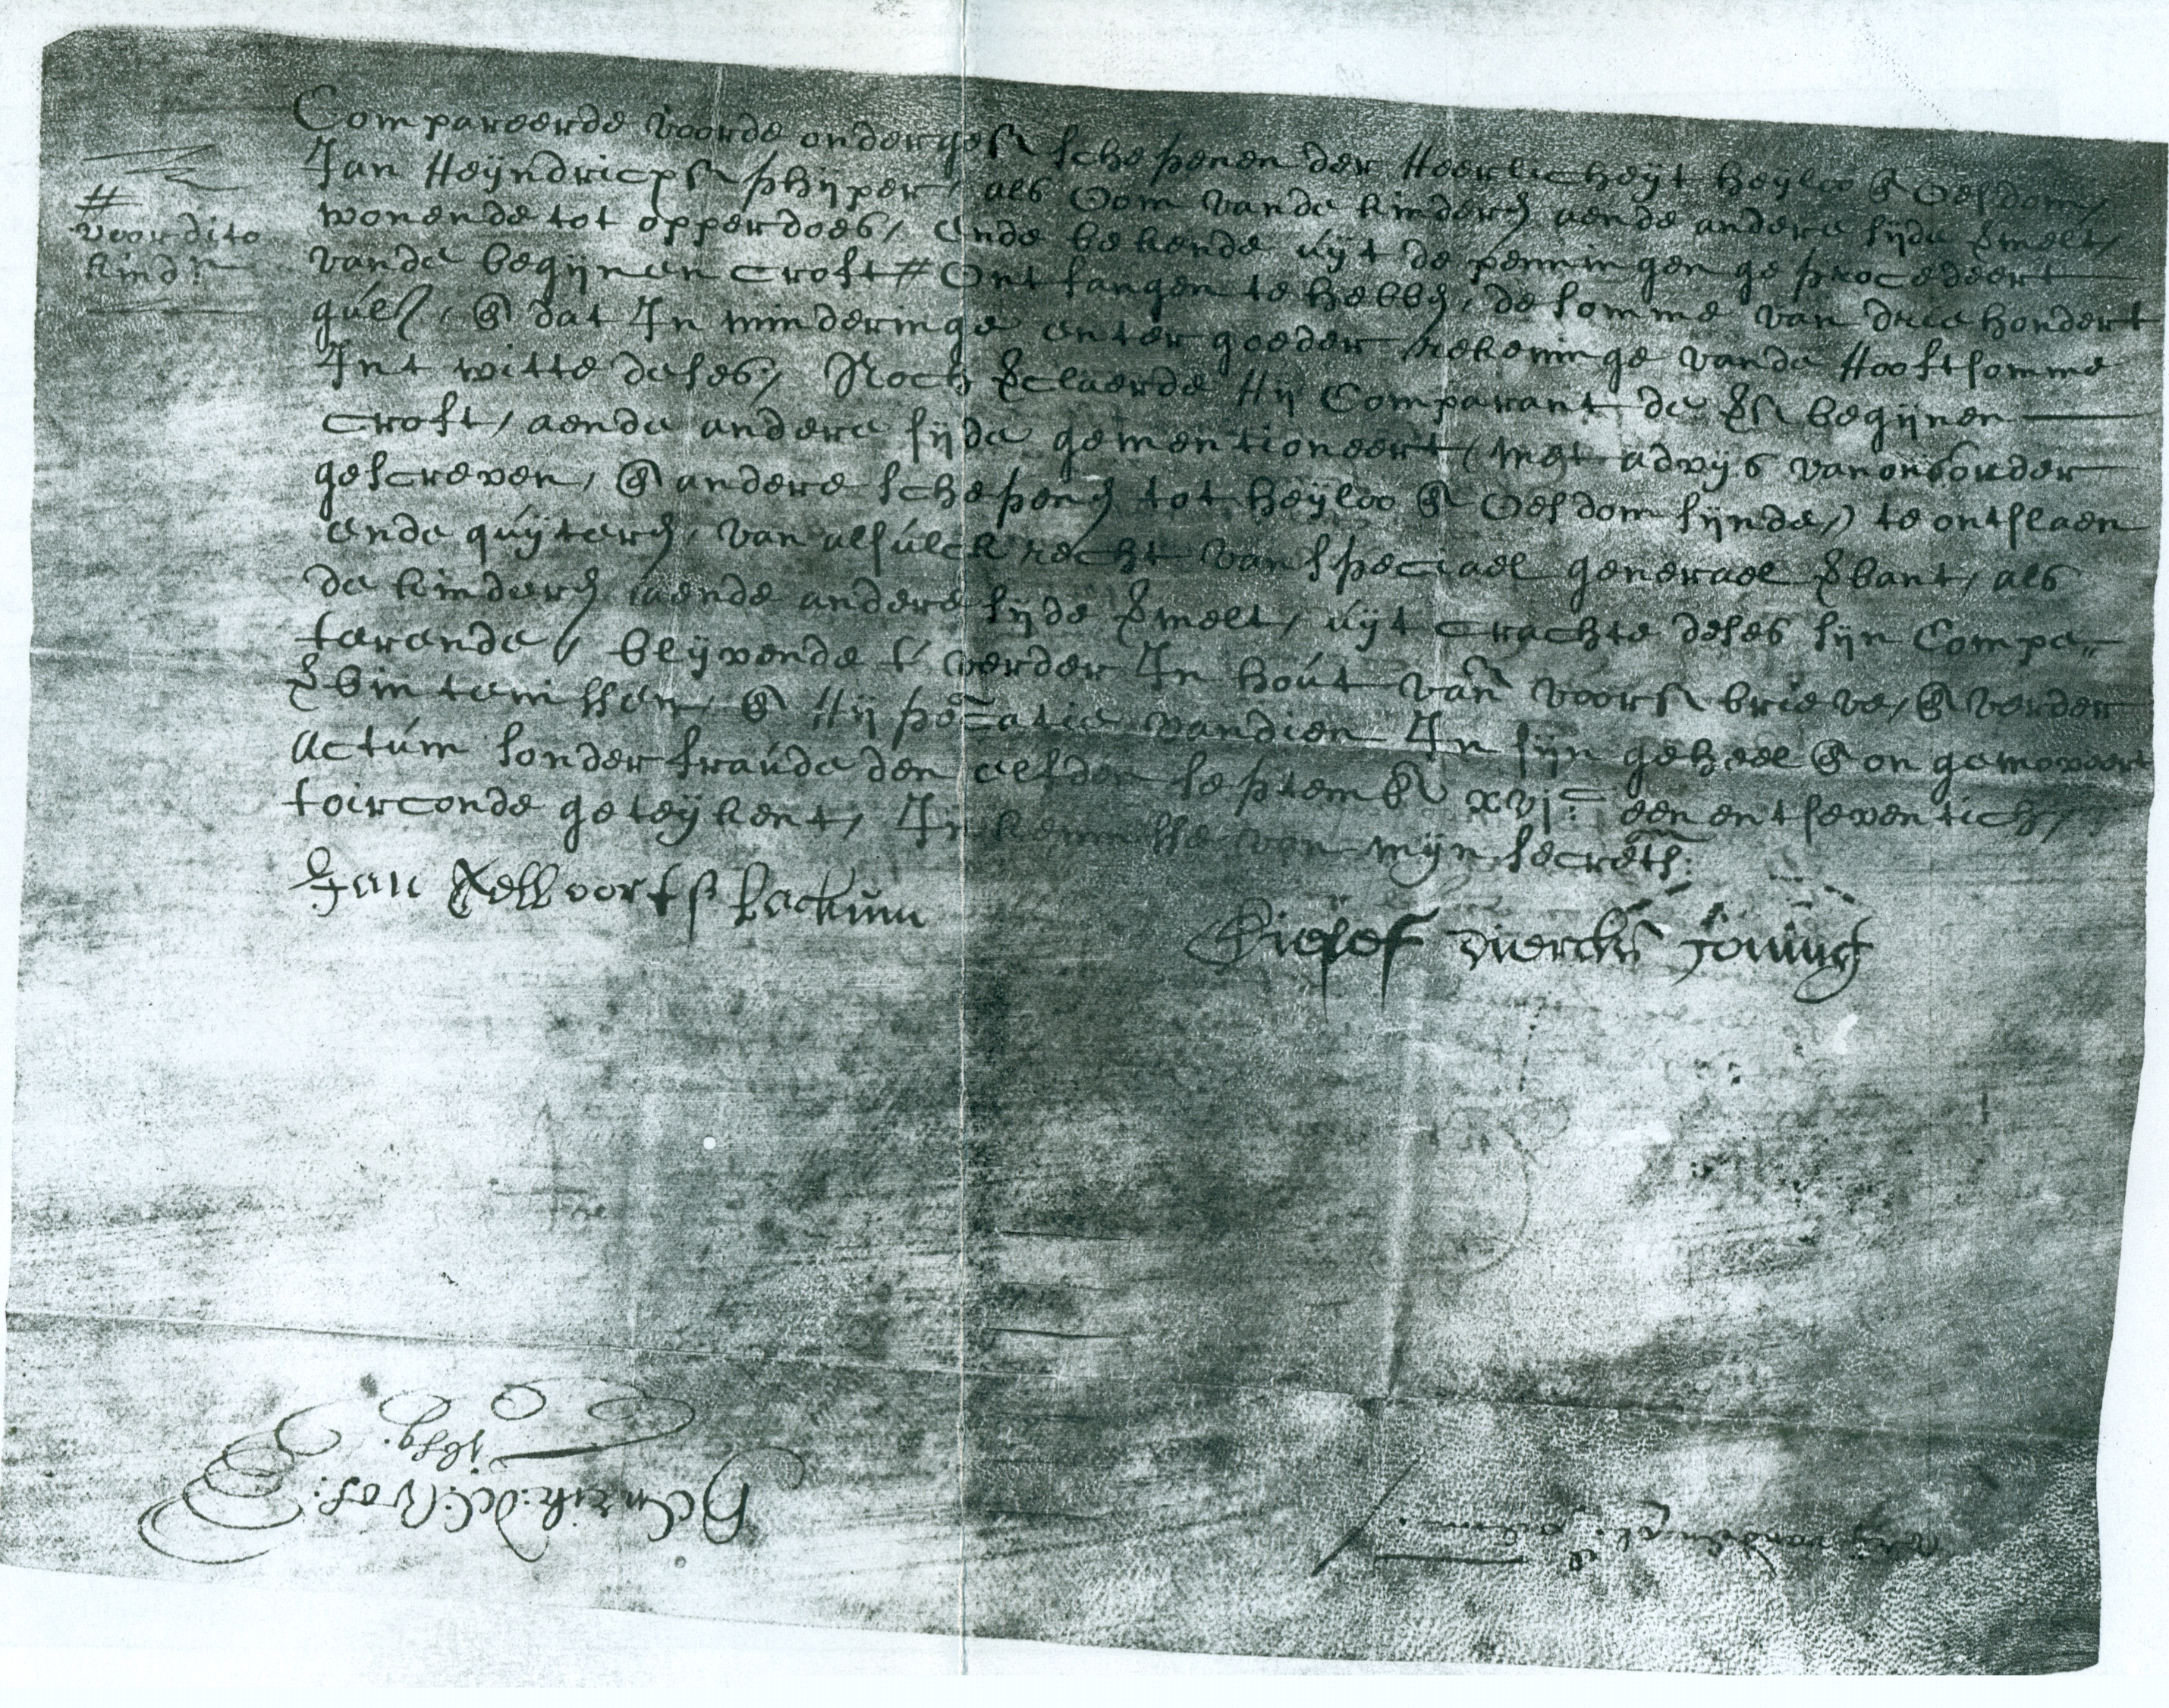 Compareerde voorde onderges. schepenen der Heerlicheyt heyloo & Oesdom,
Jan Heyndricxs. schyper, als Oom vande kinderen aende andere syde vermelt,
wonende tot opperdoes, ende bekende uyt de penningen geprocedeert
vande begynen croft # Ontfangen te hebben, de somme van driehondert
guls, & dat In minderinge enter goeder rekeninge vande Hooftsomme
Int witte deses, Noch verclaerde Hy Comparant de vs. begynen
croft, aende andere syde gementioneert (met advys van ons onder
gescreven, & andere schepenen tot heyloo & Oesdom synde,) te ontslaen
ende quyteren, van alsulck recht van speciael generael verbant, als
de kinderen aende andere syde vermelt, uyt crachte deses syn Compe-
terende, blyvende t' verder In hout vande voors. brieve, & verder
verbintenissen, & Hypotecatie vandien In syn geheel & on gemoveert
Actum sonder fraude den elfden septemb. xvjC een ent seventich,
toirconde geteykent, In kennisse van myn secrets.
#
voor dito
kind.
Jan
Diercks
Henrik: de: Vos:
1659.